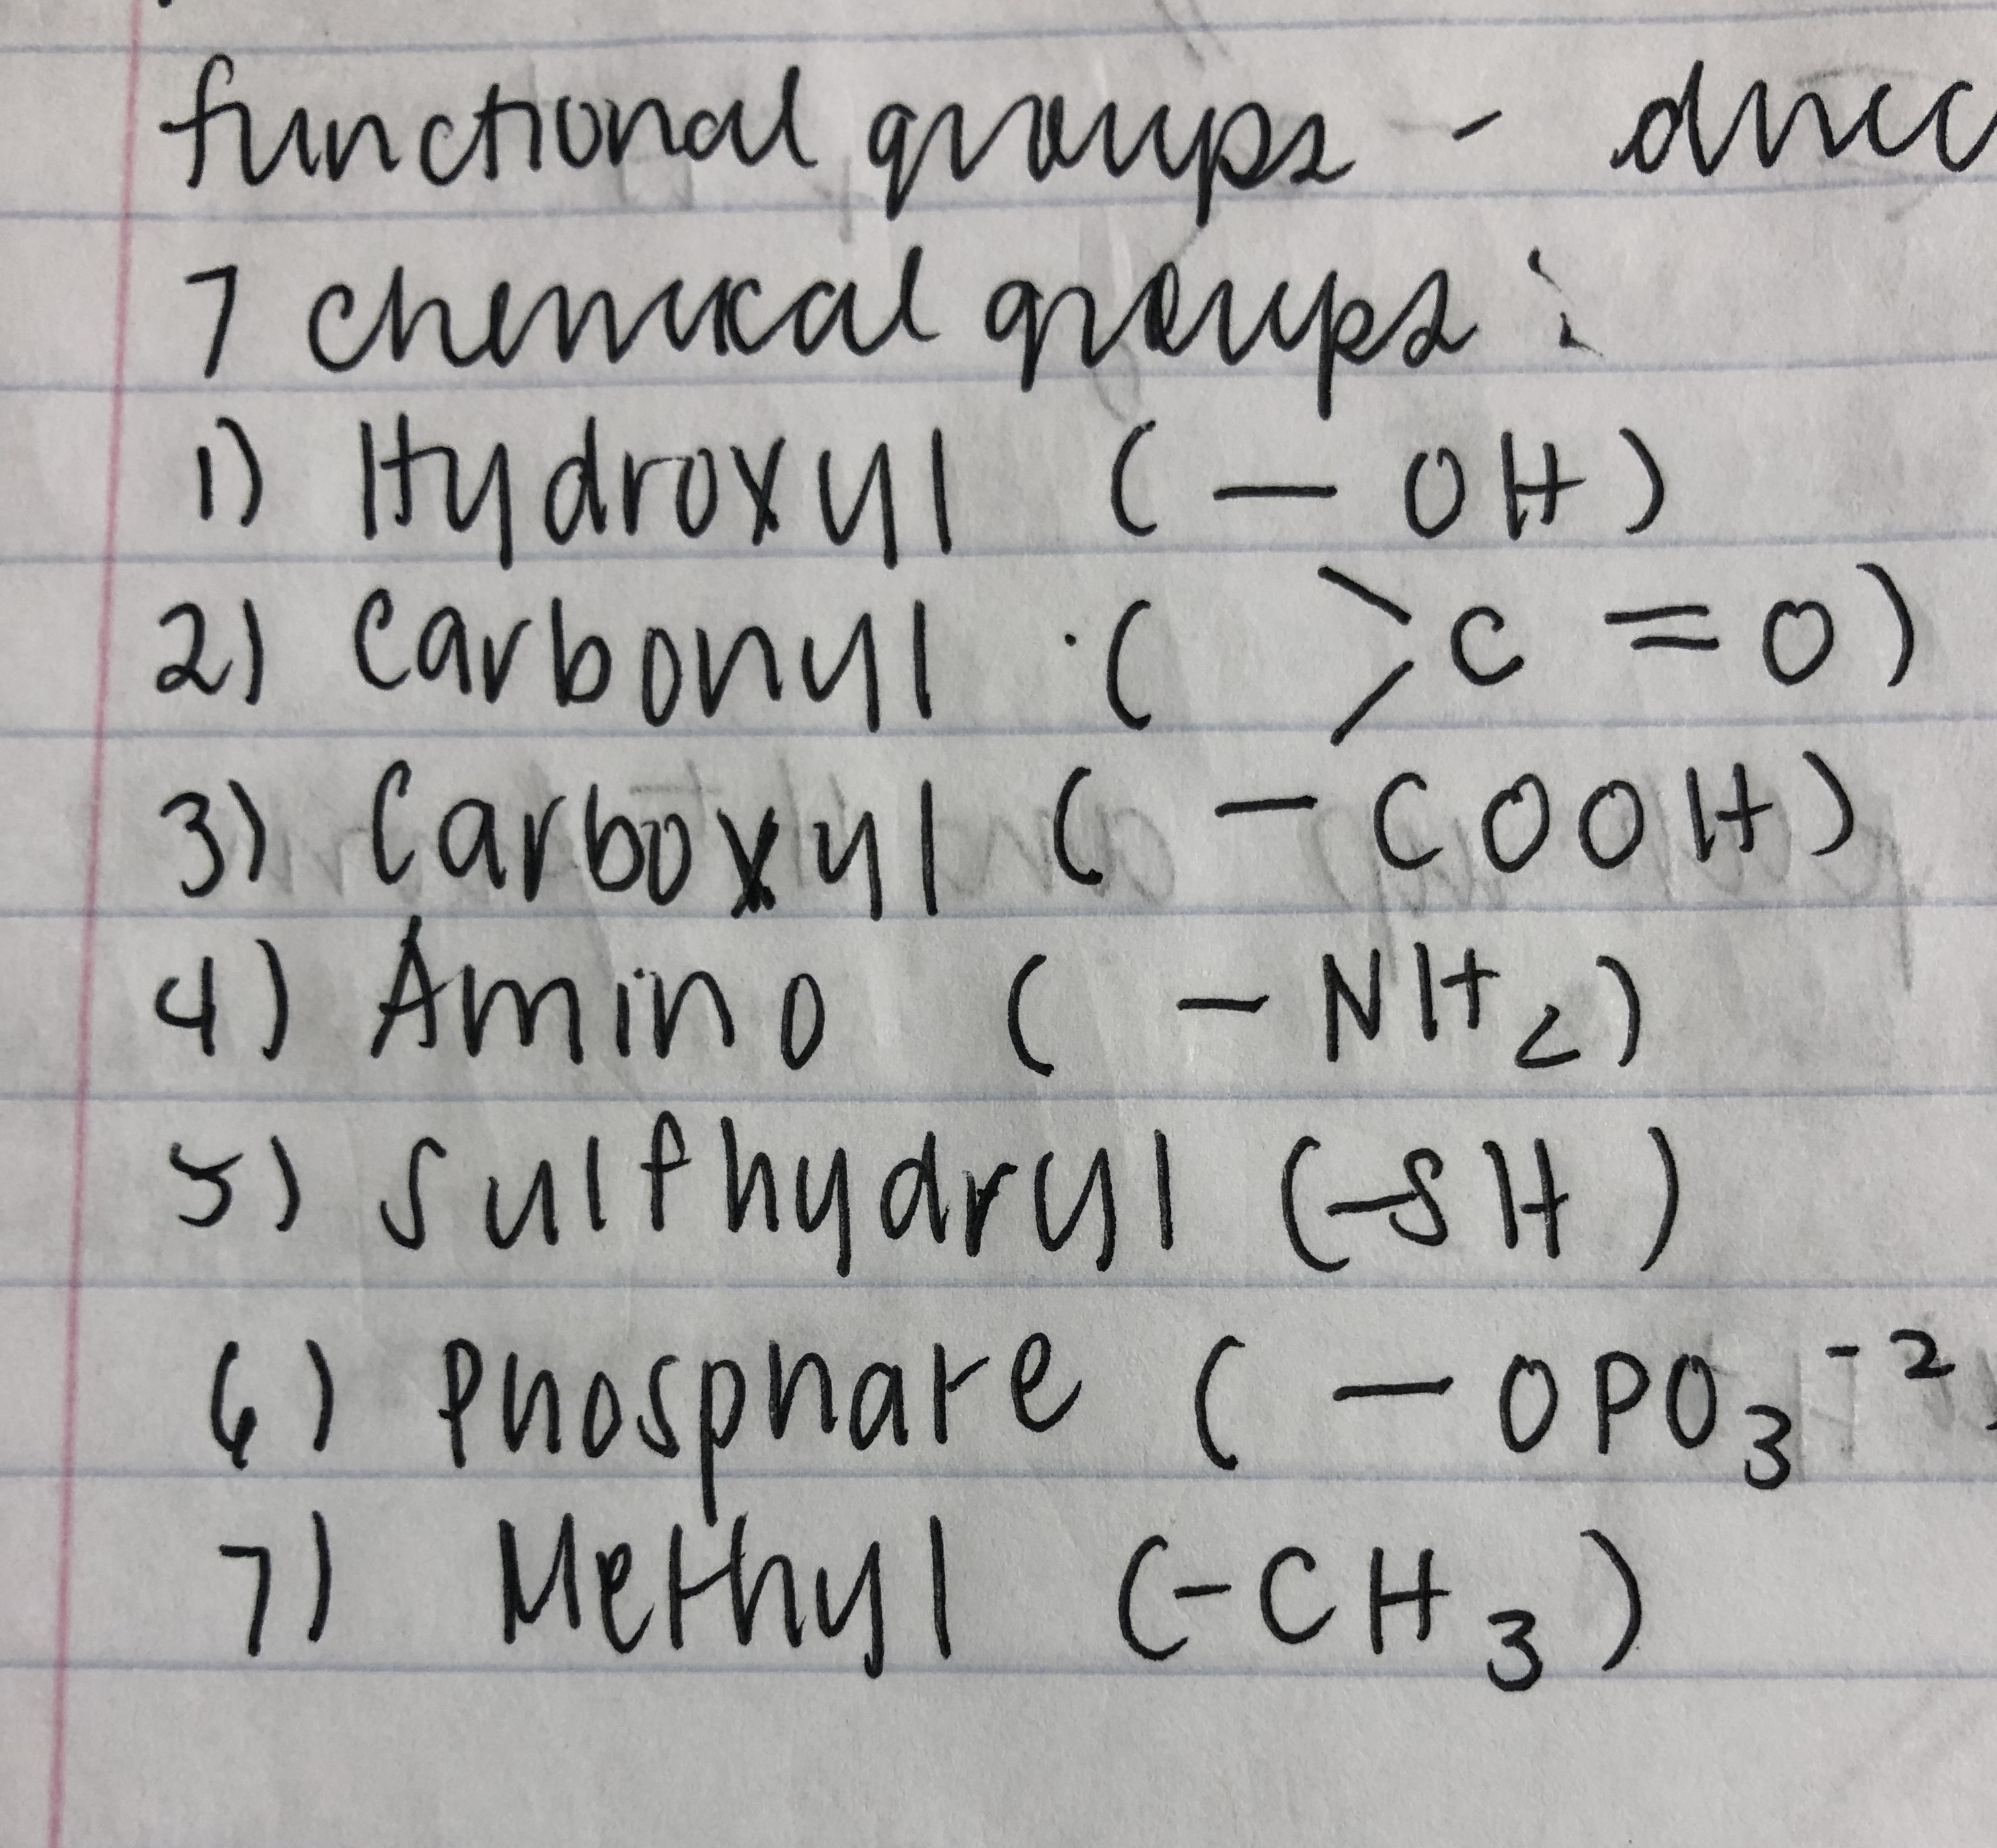 functional groups -
7 chemical groups:
1) Hydroxyl (— OH)
2) Carbonyl (>C=O)
3) Carboxyl (-COOH)
4) Amino (-NH₂)
5) Sulfhydryl (-SH)
6) Phosphate (—OPO₃⁻²)
7) Methyl (-CH₃)